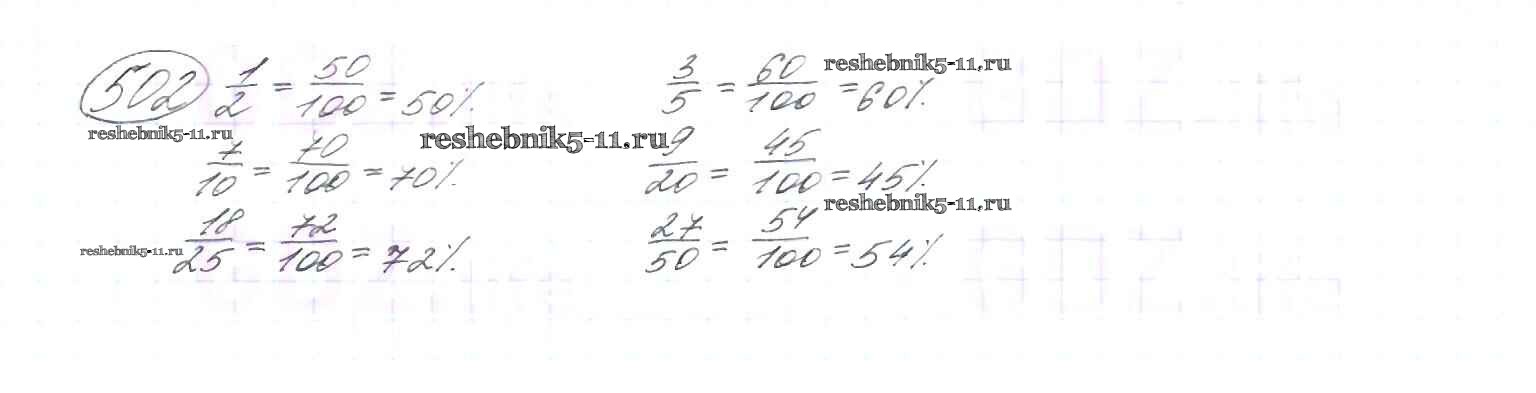 502 1/2 = 50/100 = 50%. 3/5 = 60/100 = 60%. reshebnik5-11.ru
reshebnik5-11.ru reshebnik5-11.ru
7/10 = 70/100 = 70%. 9/20 = 45/100 = 45%.
reshebnik5-11.ru
reshebnik5-11.ru 18/25 = 72/100 = 72%. 27/50 = 54/100 = 54%.